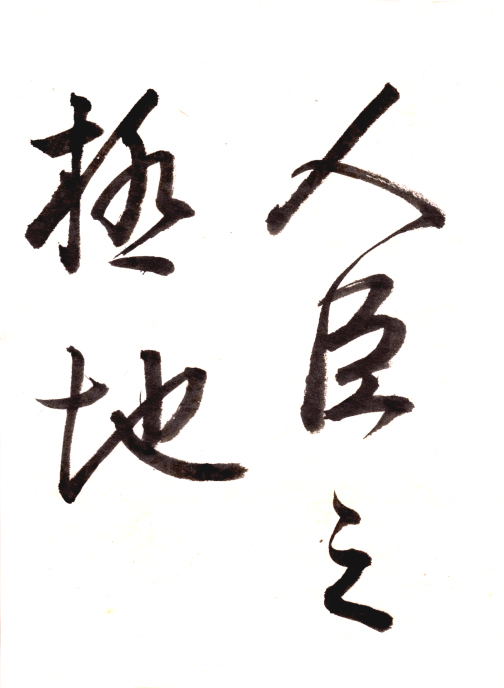 人臣之
極地